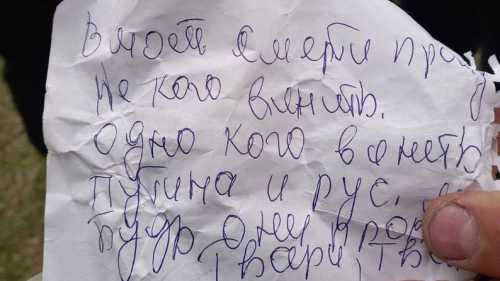 В моей смерти про
не кого винить.
Одно кого венеть
Путина и рус.
Будь они про
Твари, Тва